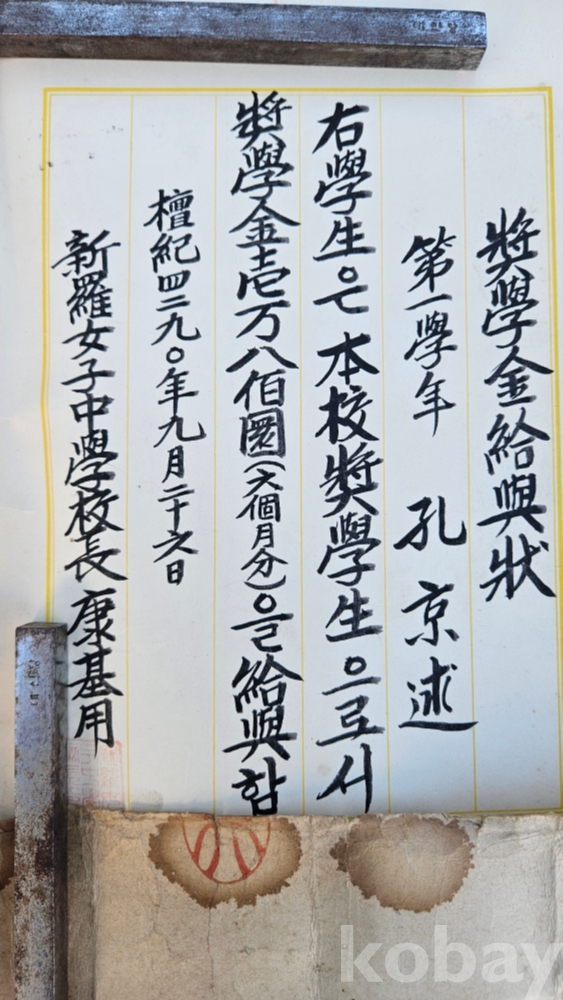 獎學金給與狀
第一學年 孔京述
右學生은 本校獎學生으로서
獎學金壱万八佰圜(六個月分)을 給與함
檀紀四二九〇年九月二十六日
新羅女子中學校長 康基用
kobay